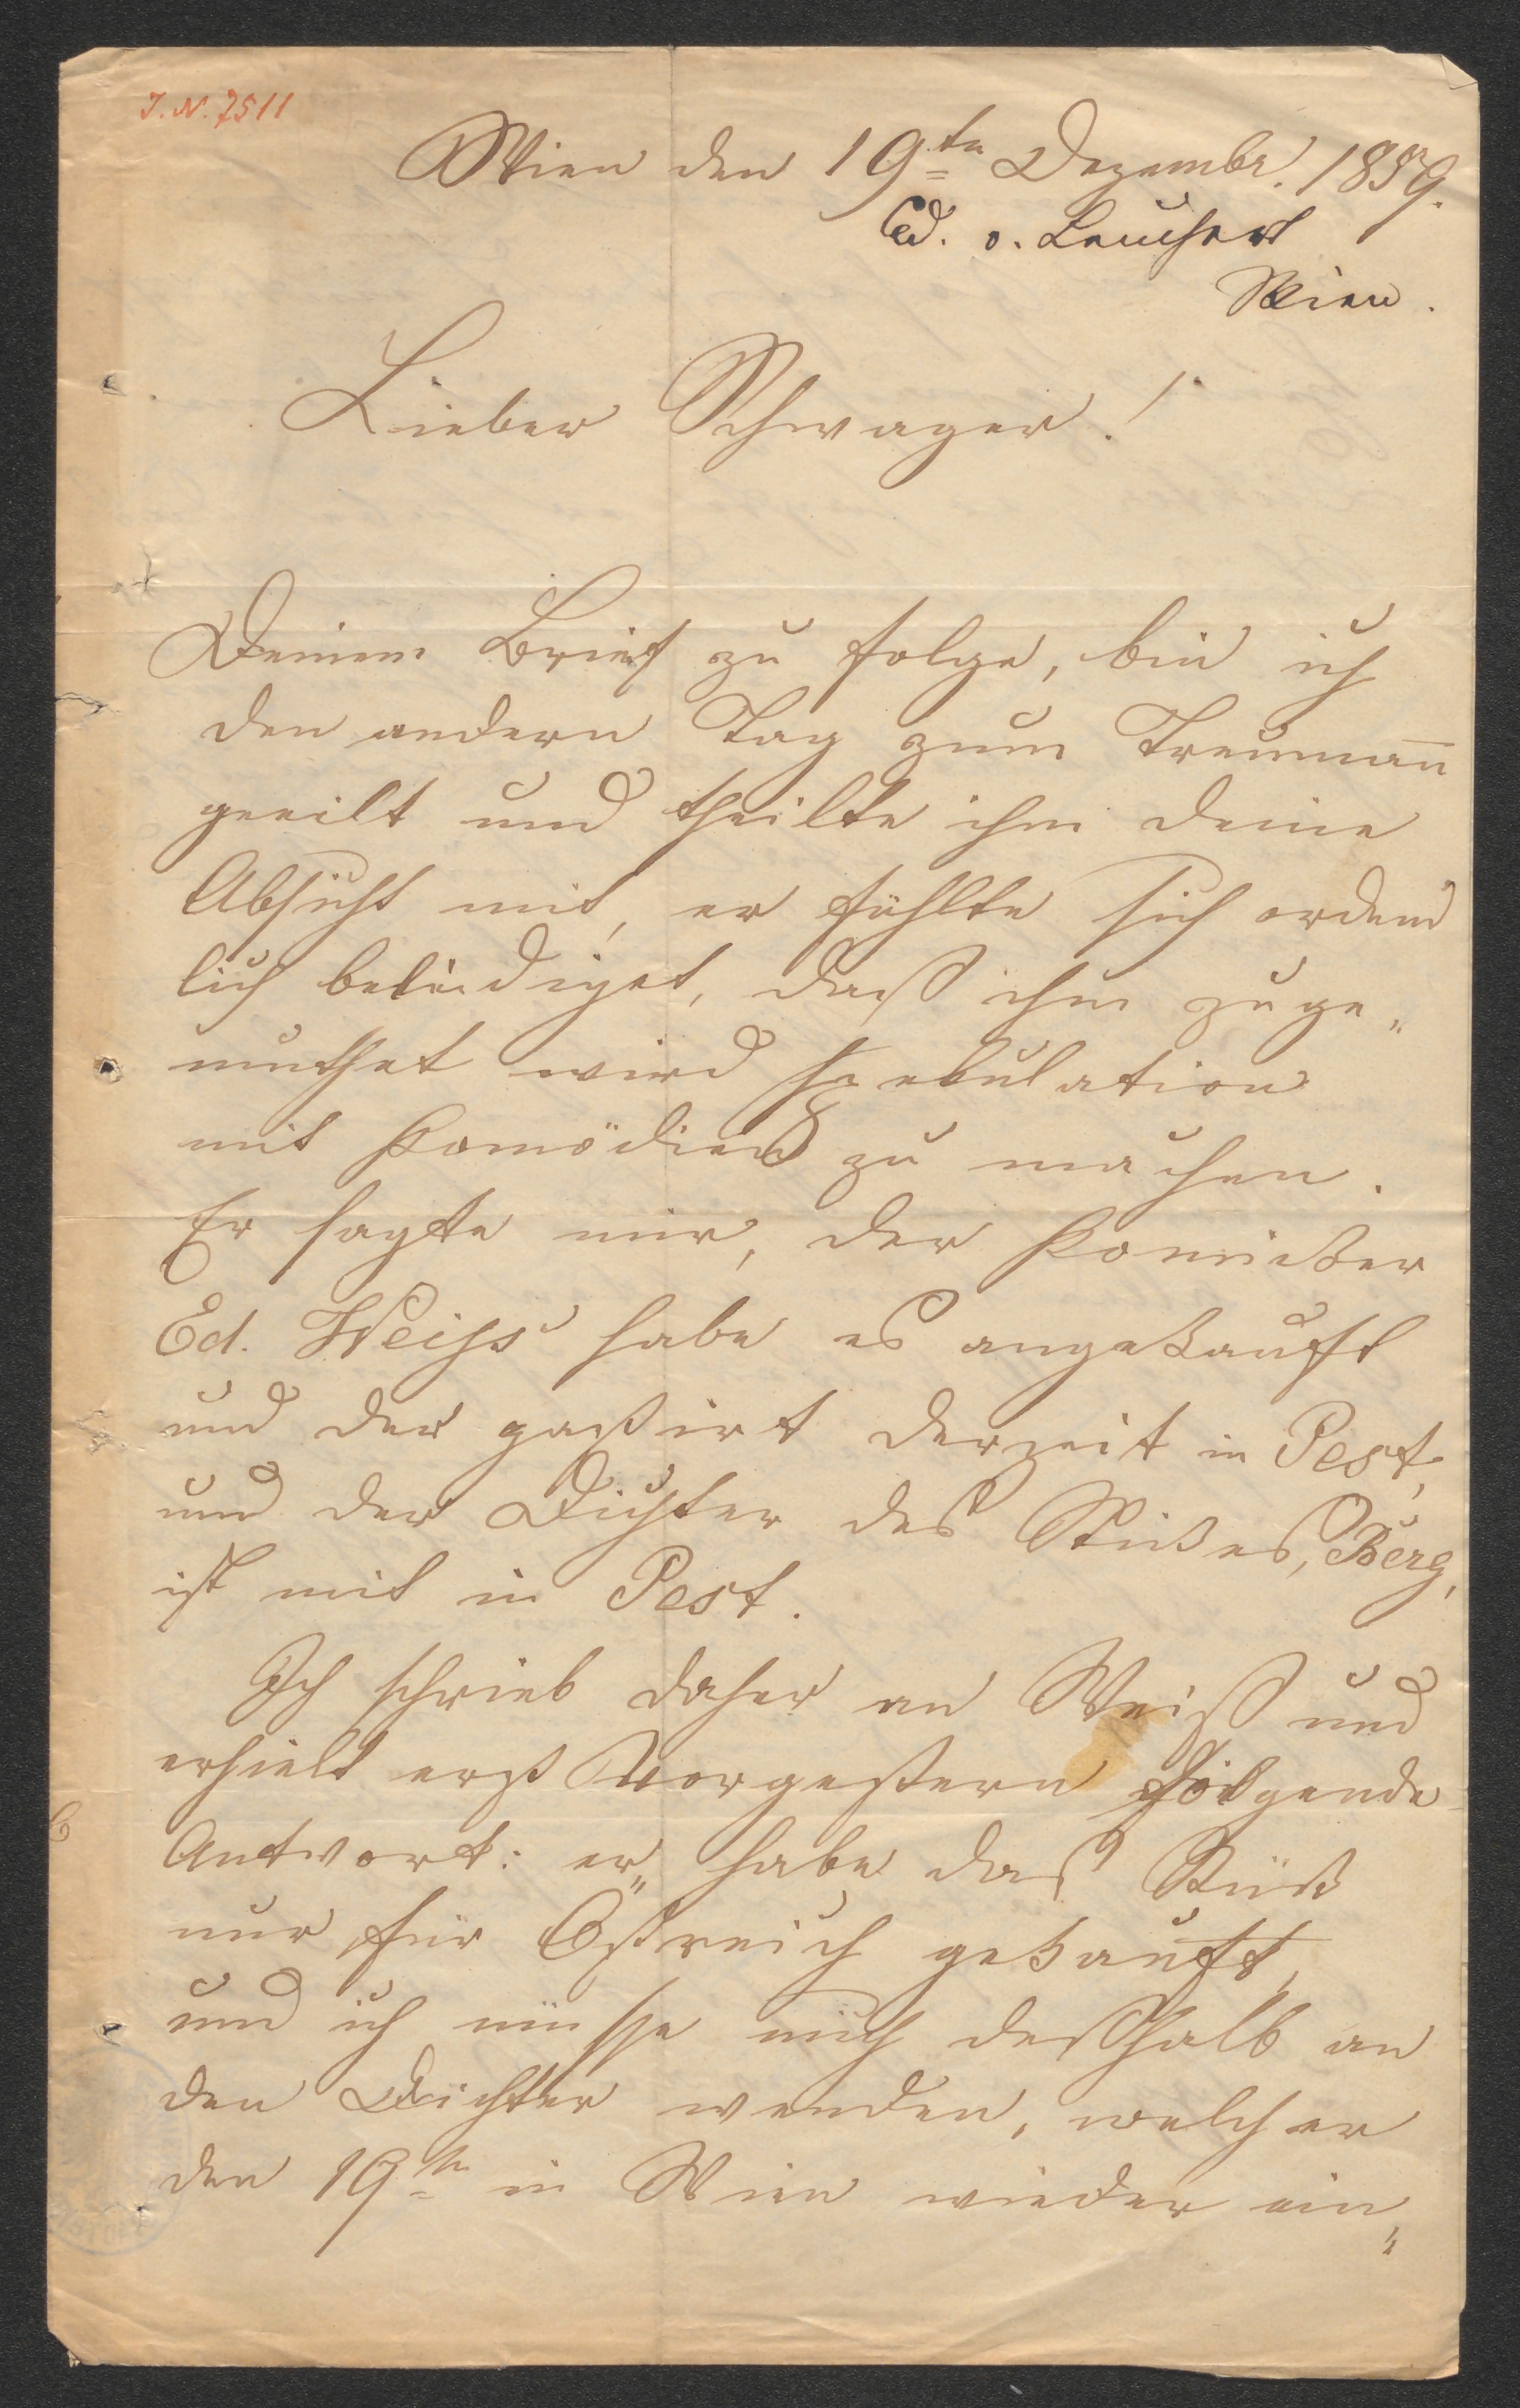 J.N. 7511
Wien den 19ten Dezembr. 1859.
Ed. v. Leuchert
Wien.
Lieber Schwager!
Deinem Brief zu folge, bin ich
den andern Tag zum Treumann̄
geeilt und theilte ihm deine
Absicht mit, er fühlte sich ordent
lich beleidiget, daß ihm zuge„
muthet wird Spekulation
mit Komödien zu machen.
Er sagte mir, der Komiker
Ed. Weiss habe es angekauft
und der gastirt derzeit in Pest,
und der Dichter des Stückes, O. Berg,
ist mit in Pest.
Ich schrieb daher an Weiß und
erhielt erst vorgestern folgende
Antwort: er„ habe das Stück
nur für Östreich gekauft,
und ich müsse mich deßhalb an
den Dichter wenden, welcher
den 19ten in Wien wieder ein„